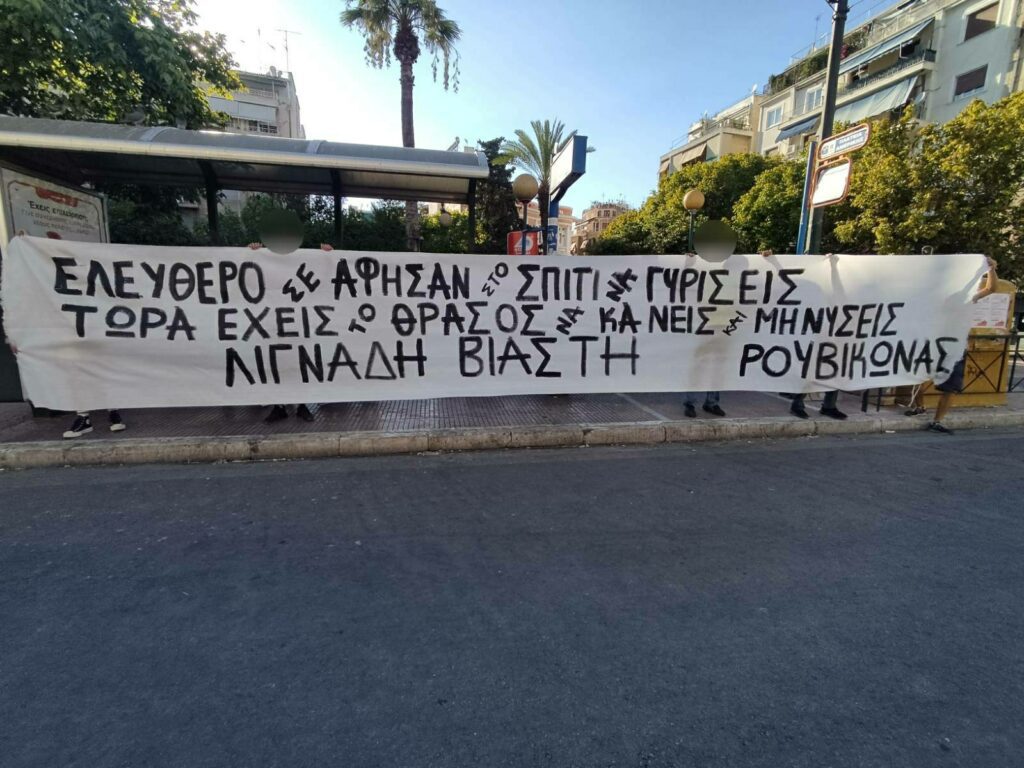 ΕΛΕΥΘΕΡΟ ΣΕ ΑΦΗΣΑΝ ΣΤΟ ΣΠΙΤΙ ΝΑ ΓΥΡΙΣΕΙΣ
ΤΩΡΑ ΕΧΕΙΣ ΤΟ ΘΡΑΣΟΣ ΝΑ ΚΑΝΕΙΣ ΚΑΙ ΜΗΝΥΣΕΙΣ
ΛΙΓΝΑΔΗ ΒΙΑΣΤΗ ΡΟΥΒΙΚΩΝΑΣ
Έχεις